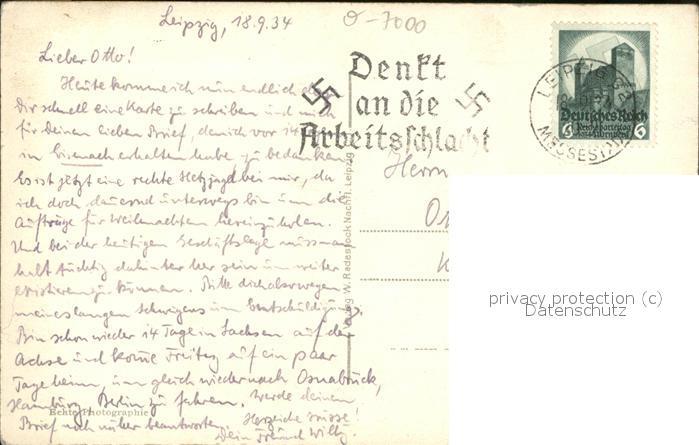 Leipzig, 18.9.34
O-7000
Lieber Otto!
Heute komme ich nun endlich
Dir schnell eine Karte zu schreiben und mich
für Deinen lieben Brief, den ich vor 14
in Eisenach erhalten habe, zu bedanken.
Es ist jetzt eine rechte Hetzjagd bei mir, da
ich doch dauernd unterwegs bin um die
Aufträge für Weihnachten hereinzuholen.
Und bei der heutigen Geschäftslage muss man
halt tüchtig dahinter her sein um weiter
existieren zu können. Bitte dich also wegen
meines langen Schweigens um Entschuldigung.
Bin schon wieder 14 Tage in Sachsen auf der
Achse und komme Freitag auf ein paar
Tage heim, um gleich wieder nach Osnabrück,
Hamburg, Berlin zu fahren. Werde deinen
Brief noch näher beantworten. Herzliche Grüsse!
Dein Freund Willy.
Echte Photographie
Verlag W. Radestock Nachfl. Leipzig
Denkt
an die
Arbeitsschlacht
LEIPZIG
MESSESTADT
Deutsches Reich
Reichsparteitag
6 6
Herrn
privacy protection (c)
Datenschutz